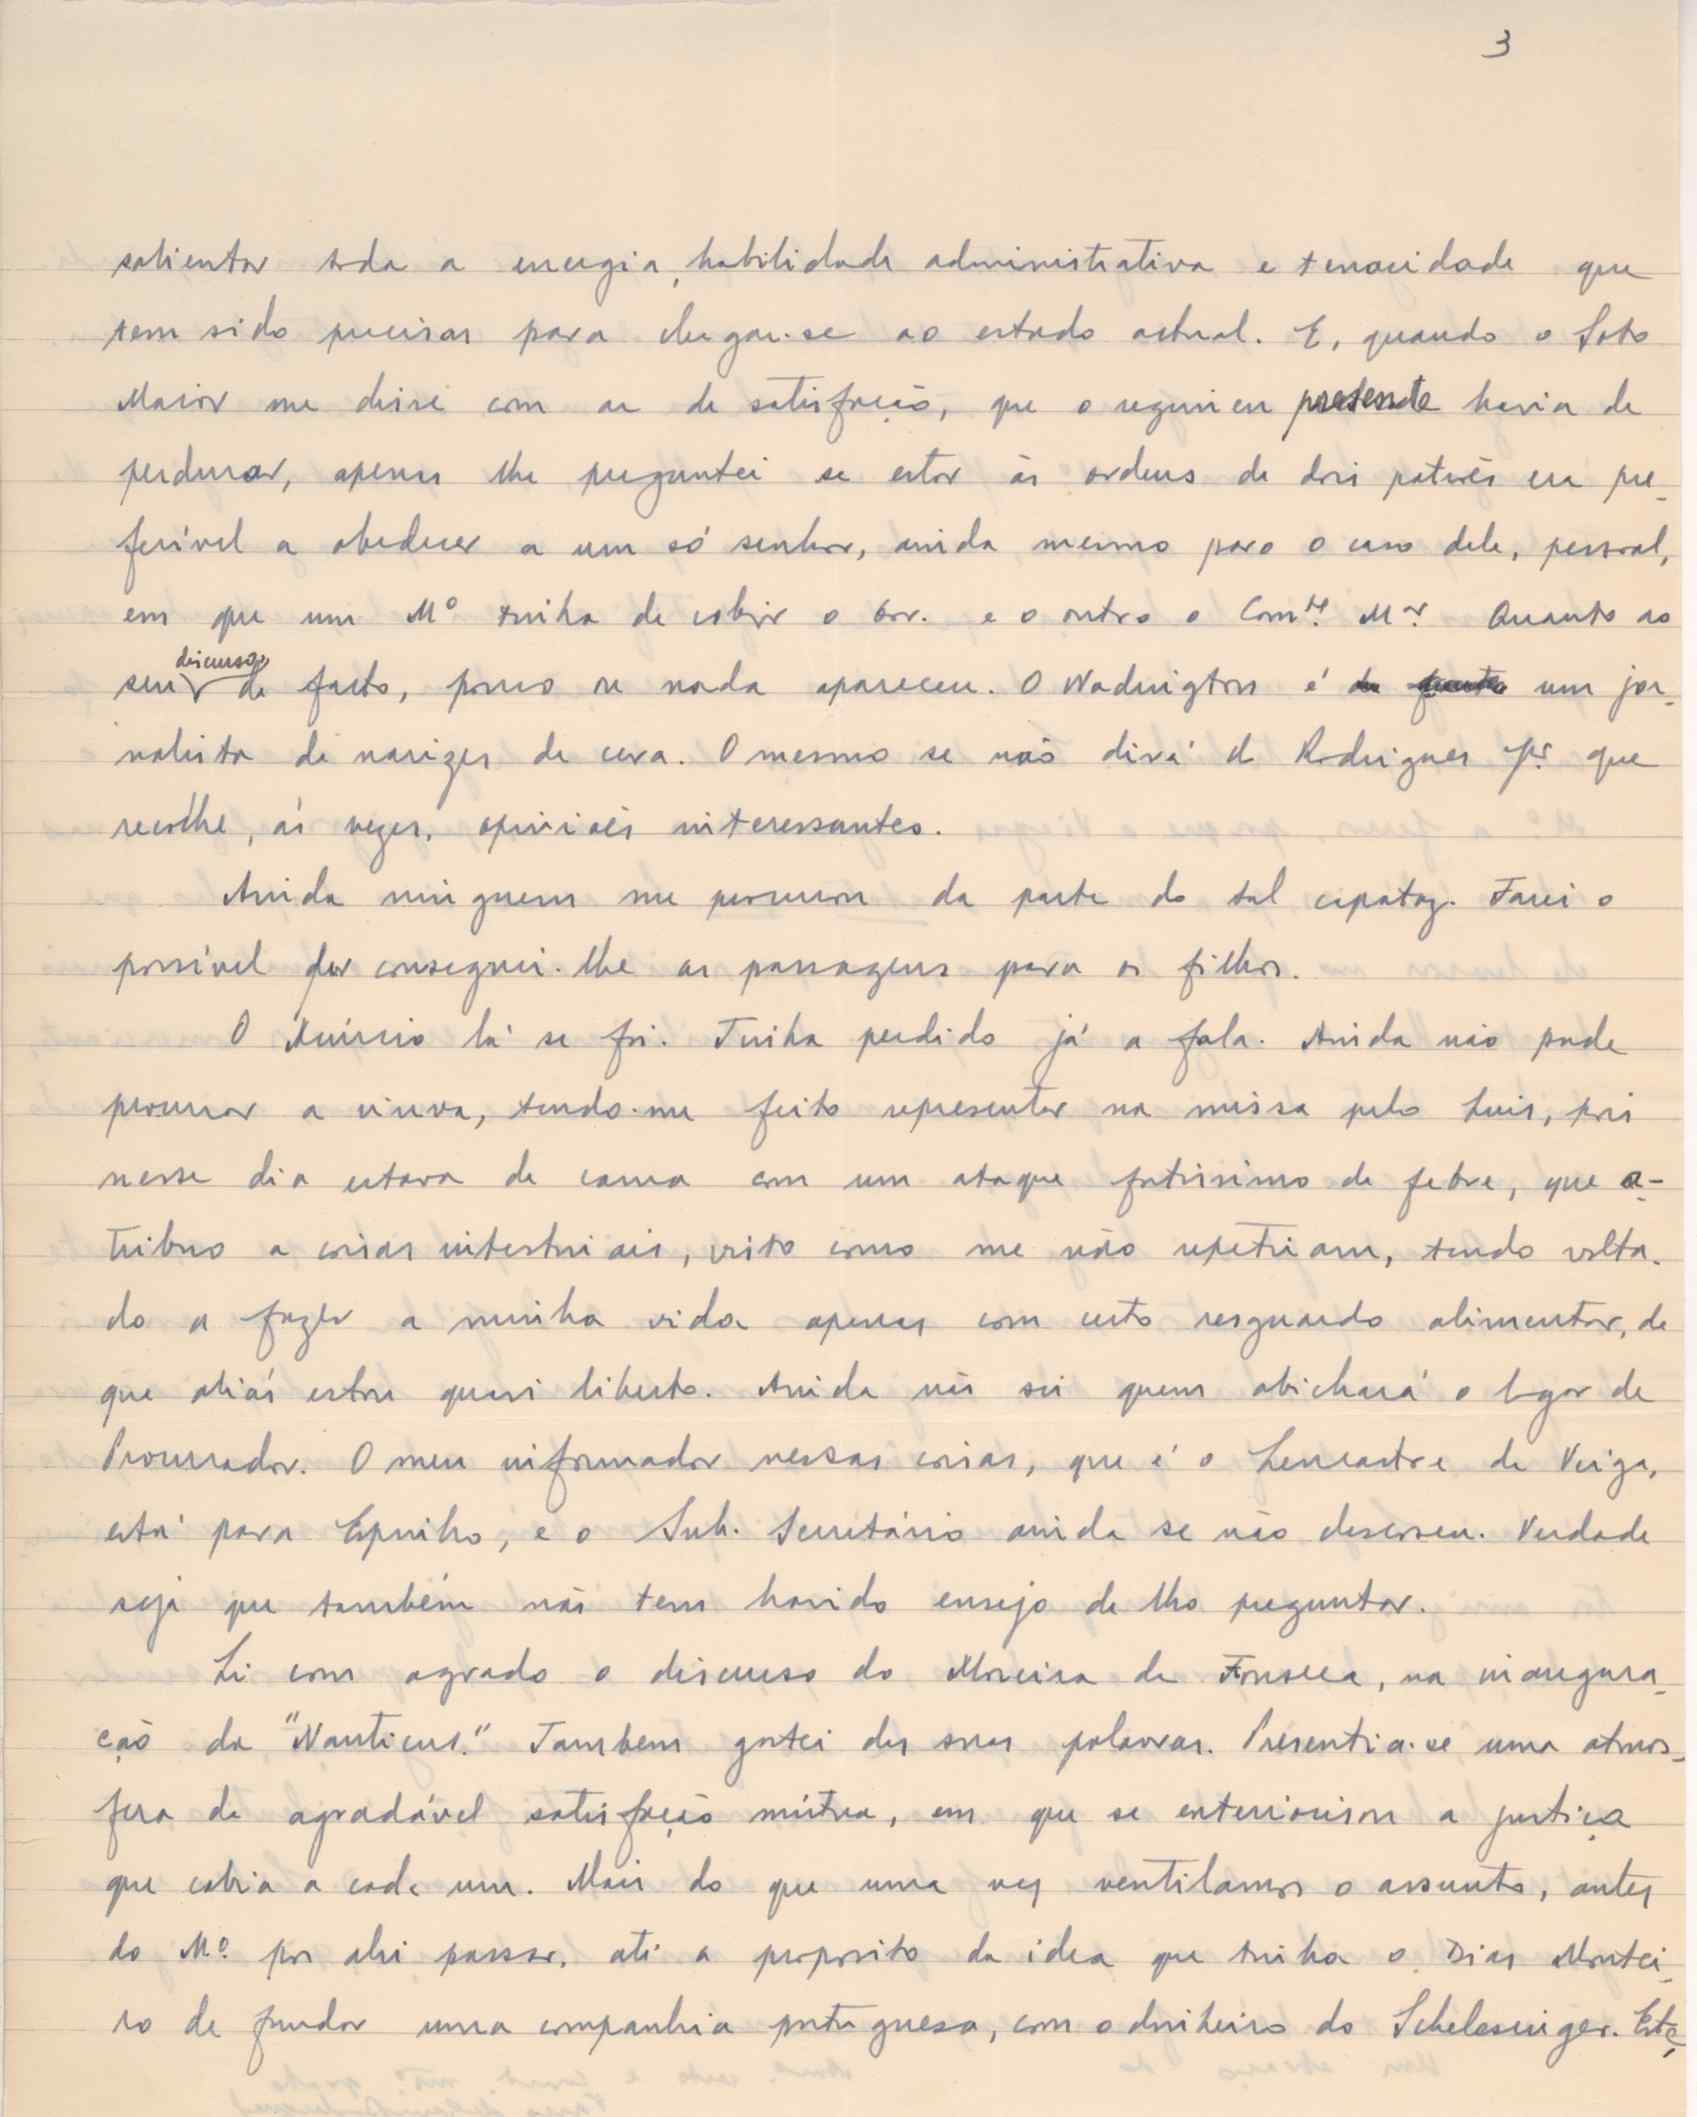 3
salientar toda a energia, habilidade administrativa e tenacidade que
tem sido precisas para chegar-se ao estado actual. E, quando o Soto
Maior me disse com ar de satisfação, que o regimen presente havia de
perdurar, apenas lhe preguntei se estar às ordens de dois patrões era pre-
ferível a obedecer a um só senhor, ainda mesmo para o caso dele, pessoal,
em que um Mº tinha de cobrir o Gov. e o outro o Com.te M.or Quanto ao
seu discurso de facto, pouco ou nada apareceu. O Wadington é um jor-
nalista de narizes de cera. O mesmo se não dirá do Rodrigues Jr. que
recolhe, às vezes, opiniões interessantes.
Ainda ninguem me procurou da parte do tal capataz. Farei o
possível por conseguir-lhe as passagens para os filhos.
O Núncio lá se foi. Tinha perdido já a fala. Ainda não pude
procurar a viuva, tendo-me feito representar na missa pelo Luis, pois
nesse dia estava de cama com um ataque fortissimo de febre, que a-
tribuo a coisas intestinais, visto como me não repetiram, tendo volta-
do a fazer a minha vida apenas com certo resguardo alimentar, de
que aliás estou quasi liberto. Ainda não sei quem abichará o lugar de
Procurador. O meu informador nessas coisas, que é o Lencastre da Veiga,
está para Espinho, e o Sub. Secretário ainda se não descoseu. Verdade
seja que também não tem havido ensejo de lho preguntar.
Li com agrado o discurso do Moreira da Fonseca, na inaugura-
ção da "Nauticus." Tambem gostei das suas palavras. Presentia-se uma atmos-
fera de agradável satisfação mútua, em que se exteriorisou a justiça
que cabia a cada um. Mais do que uma vez ventilamos o assunto, antes
do Mº por ahi passar, até a proposito da idea que tinha o Dias Montei-
ro de fundar uma companhia portuguesa, com o dinheiro do Schelesinger. Este,